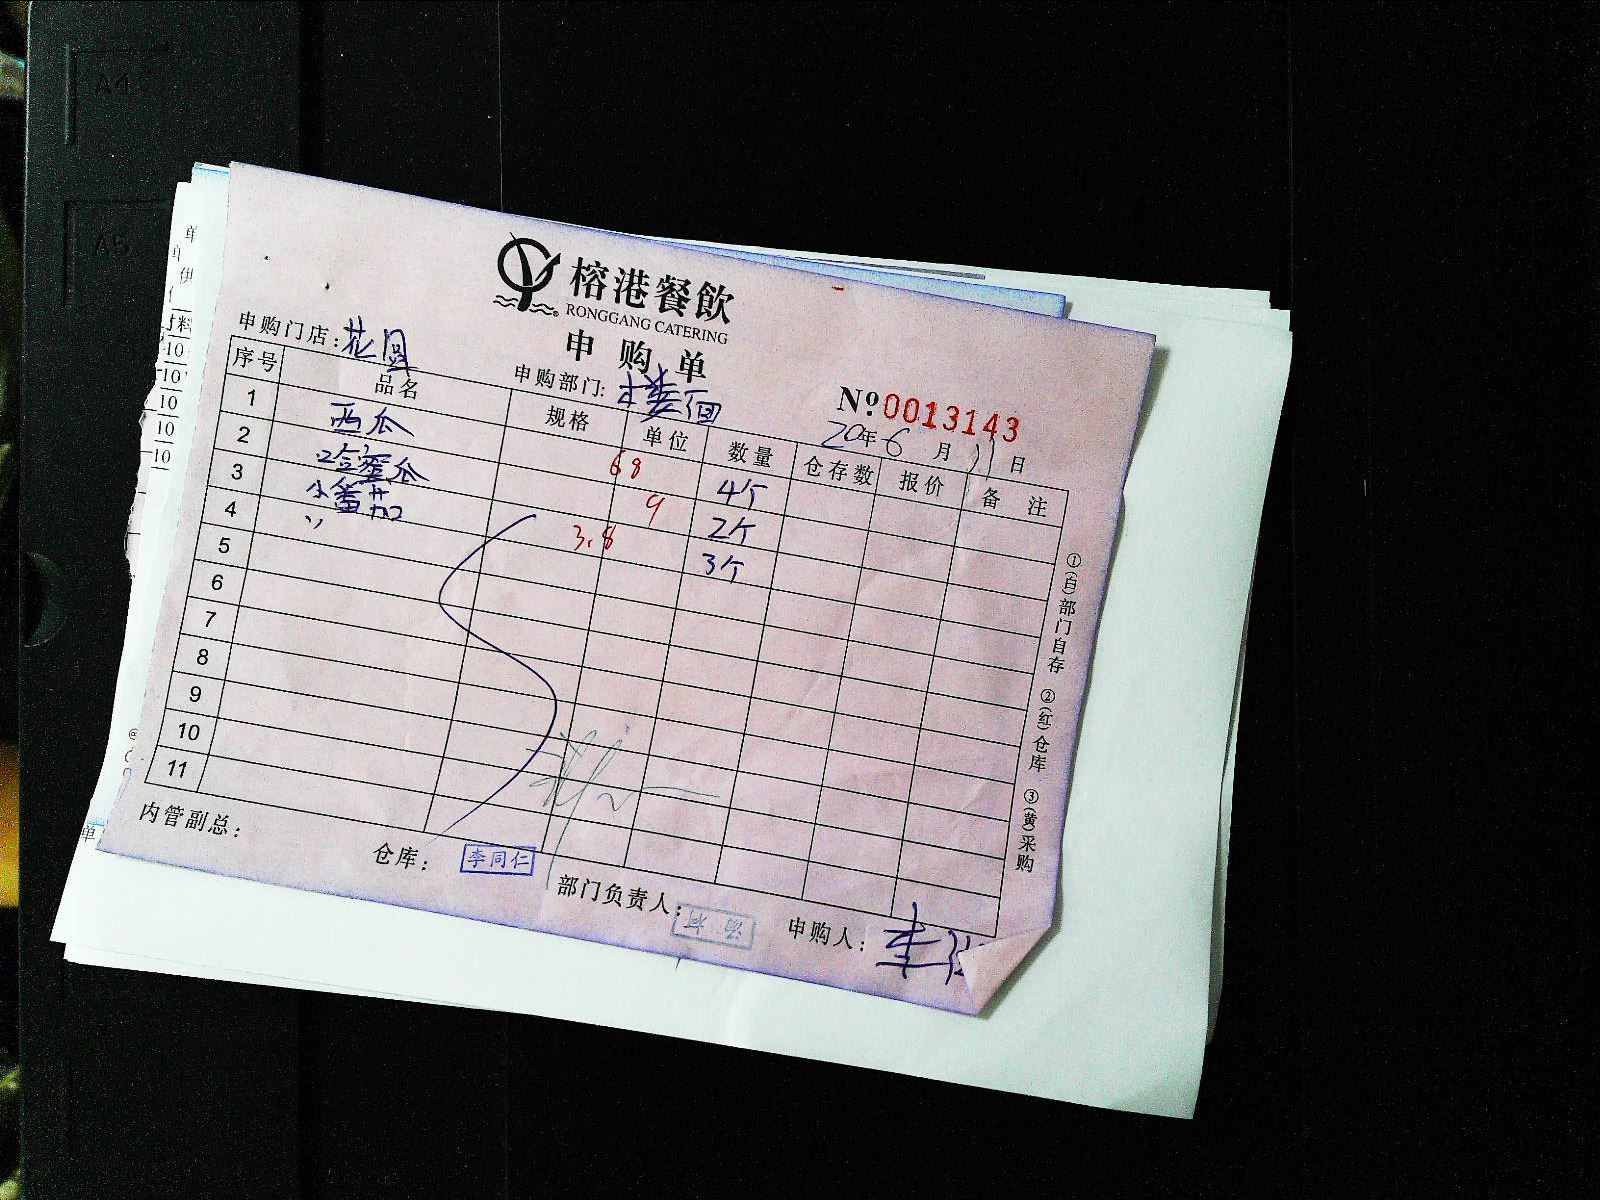 榕港餐飲
RONGGANG CATERING
申购单
申购门店：花园
申购部门：楼面
№ 0013143
20年 6月 11日
序号 品名 规格 单位 数量 仓存数 报价 备注
1 西瓜 68 4个
2 哈蜜瓜 9 2个
3 小番茄 3.8 3个
4
5
6
7
8
9
10
11
①(白)部门自存 ②(红)仓库 ③(黄)采购
内管副总：
仓库：李同仁
部门负责人：
申购人：
A4
A5
单
单
供
材料
10
10
10
10
10
单